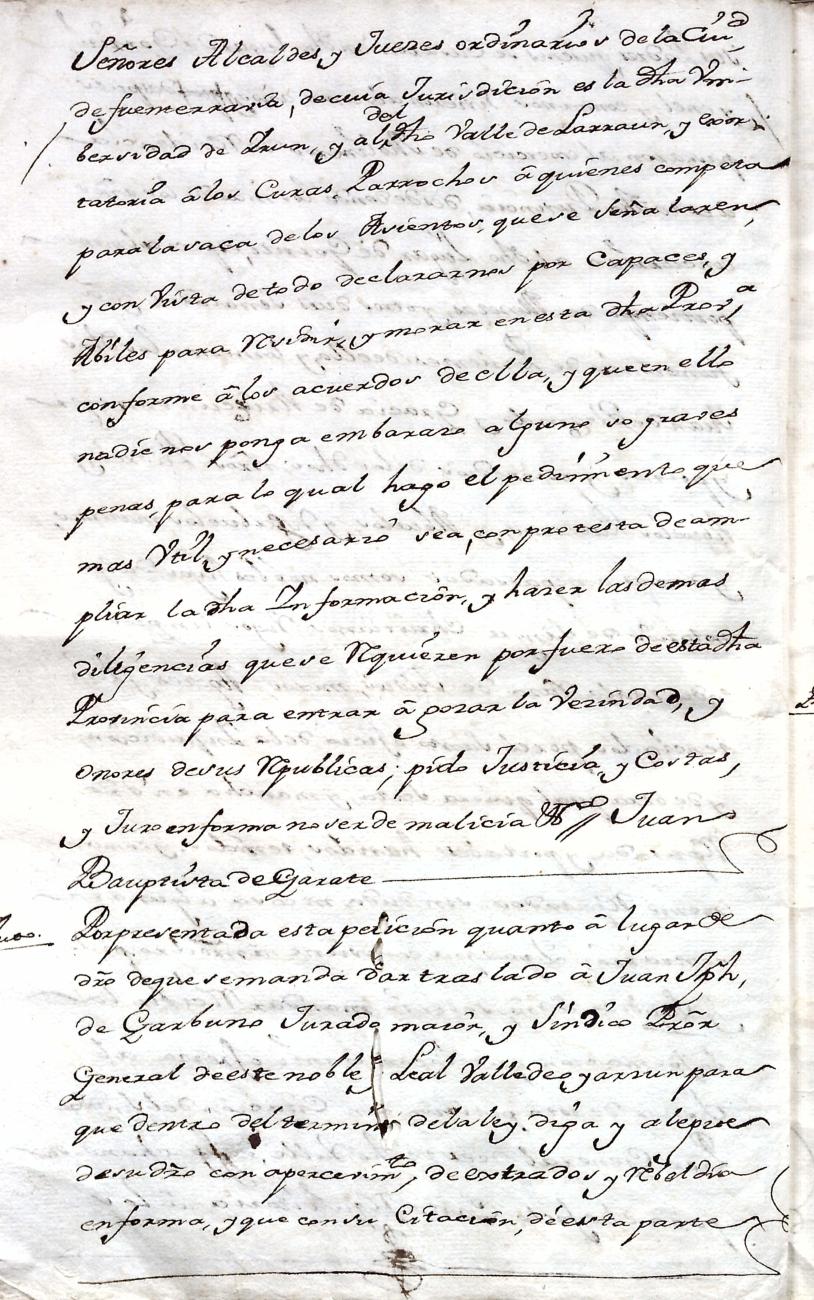 Señores Alcaldes, y Juezes ordinarios de la Ciud
de fuenterravia, de cuia Jurisdicion es la dha Vni-
bersidad de Yrun, y al del dho Valle de Larraun, y exor-
tatoria â los Curas Parrochos â quienes competa
para la saca de los Asientos, que se señalaren,
y con Vista de todo declararnos por Capaces, y
Abiles para Residir, y morar en esta dha Prova
conforme â los acuerdos de ella, y que en ello
nadie nos ponga embarazo alguno so graves
penas, para lo qual hago el pedimiento que
mas Vtil, y necesario sea, con protesta de am-
pliar la dha Informacion, y hazer las demas
diligencias que se Requieren por fuero de esta dha
Provincia para entrar â gozar la Vezindad, y
onores de sus Republicas; pido Justicia, y Costas,
y Juro en forma no ser de malicia Juan
Bauptista de Garate
Por presentada esta peticion quanto â lugar de
dro de que se manda dar traslado â Juan Jph,
de Garbuno Jurado maior, y Sindico Prôr
General de este noble y Leal Valle de oyarzun para
que dentro del termino de la ley diga y alegue
de su dro con apercevimto, de extrados y Rebeldia
en forma, y que con su Citacion, de esta parte